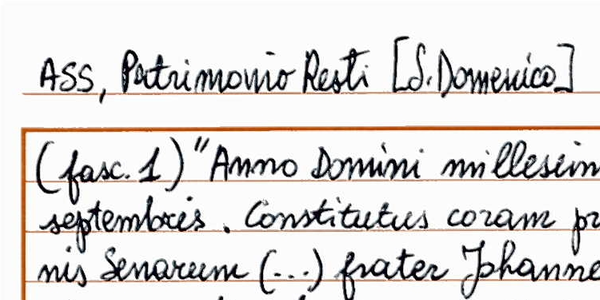 ASS, Patrimonio Resti [S. Domenico]
(fasc. 1) "Anno Domini millesim
septembris. Constitutus coram pr
nis Senarum (...) frater Johanne